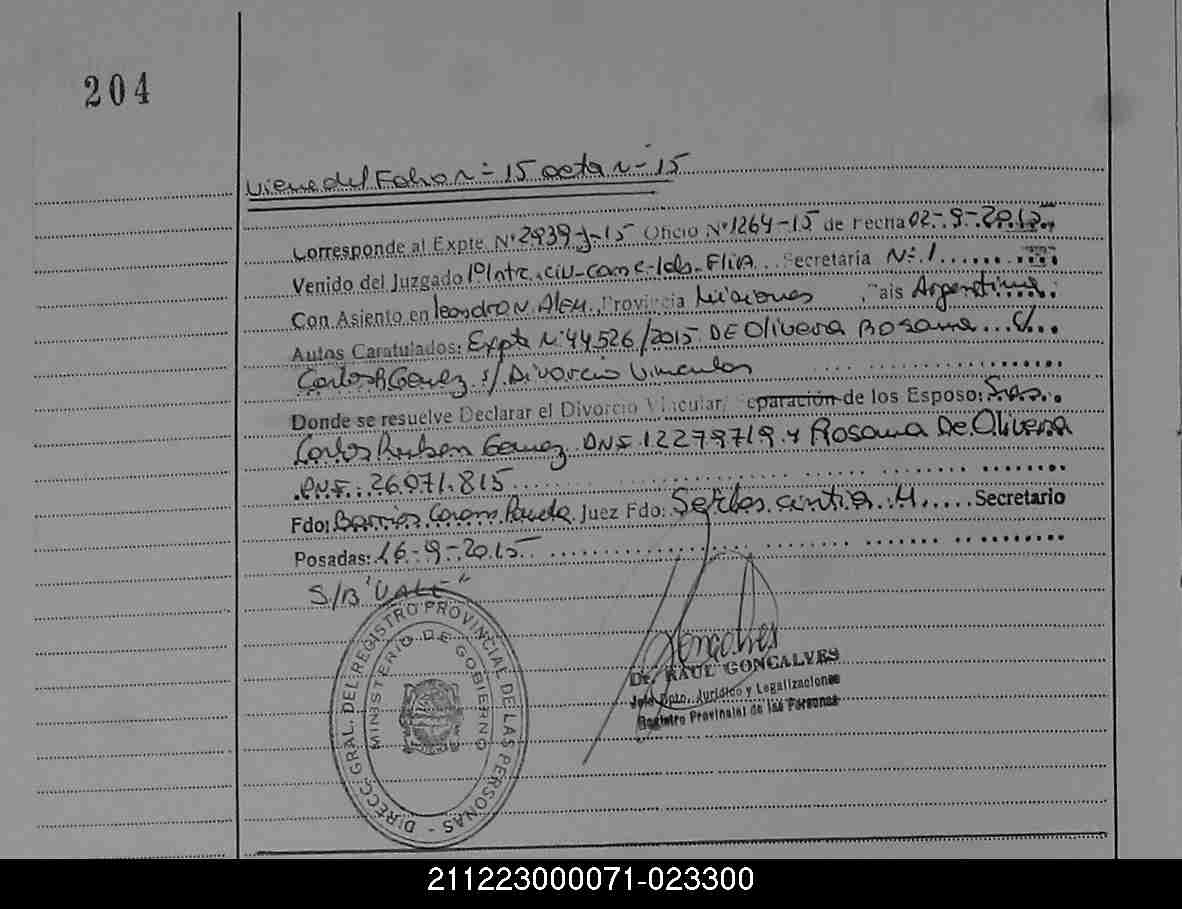 204
Viene del Folio n=15 acta n=15
Corresponde al Expte. Nº 2939-J-15 Oficio Nº 1264-15 de Fecha 02-9-2015
Venido del Juzgado 1º Int. Civ-Come-Lab-Flia. Secretaria Nº 1
Con Asiento en Leandro N. Alem. Provincia Misiones Pais Argentina
Autos Caratulados: Expte Nº 44526/2015 DE Olivera Rosana C/
Carlos R Gomez s/ Divorcio Vincular
Donde se resuelve Declarar el Divorcio Vincular/ Separación de los Esposo: Sres.
Carlos Ruben Gomez DNI 12279719 y Rosana De Olivera
DNI: 26.071.815
Fdo: Barrios Juez Fdo: Cintia M. Secretario
Posadas: 16-9-2015
S/B "VALE"
DIRECC. GRAL. DEL REGISTRO PROVINCIAL DE LAS PERSONAS -
MINISTERIO DE GOBIERNO
Goncalves
Dr. RAUL GONCALVES
Jefe Dpto. Jurídico y Legalizaciones
Registro Provincial de las Personas
211223000071-023300